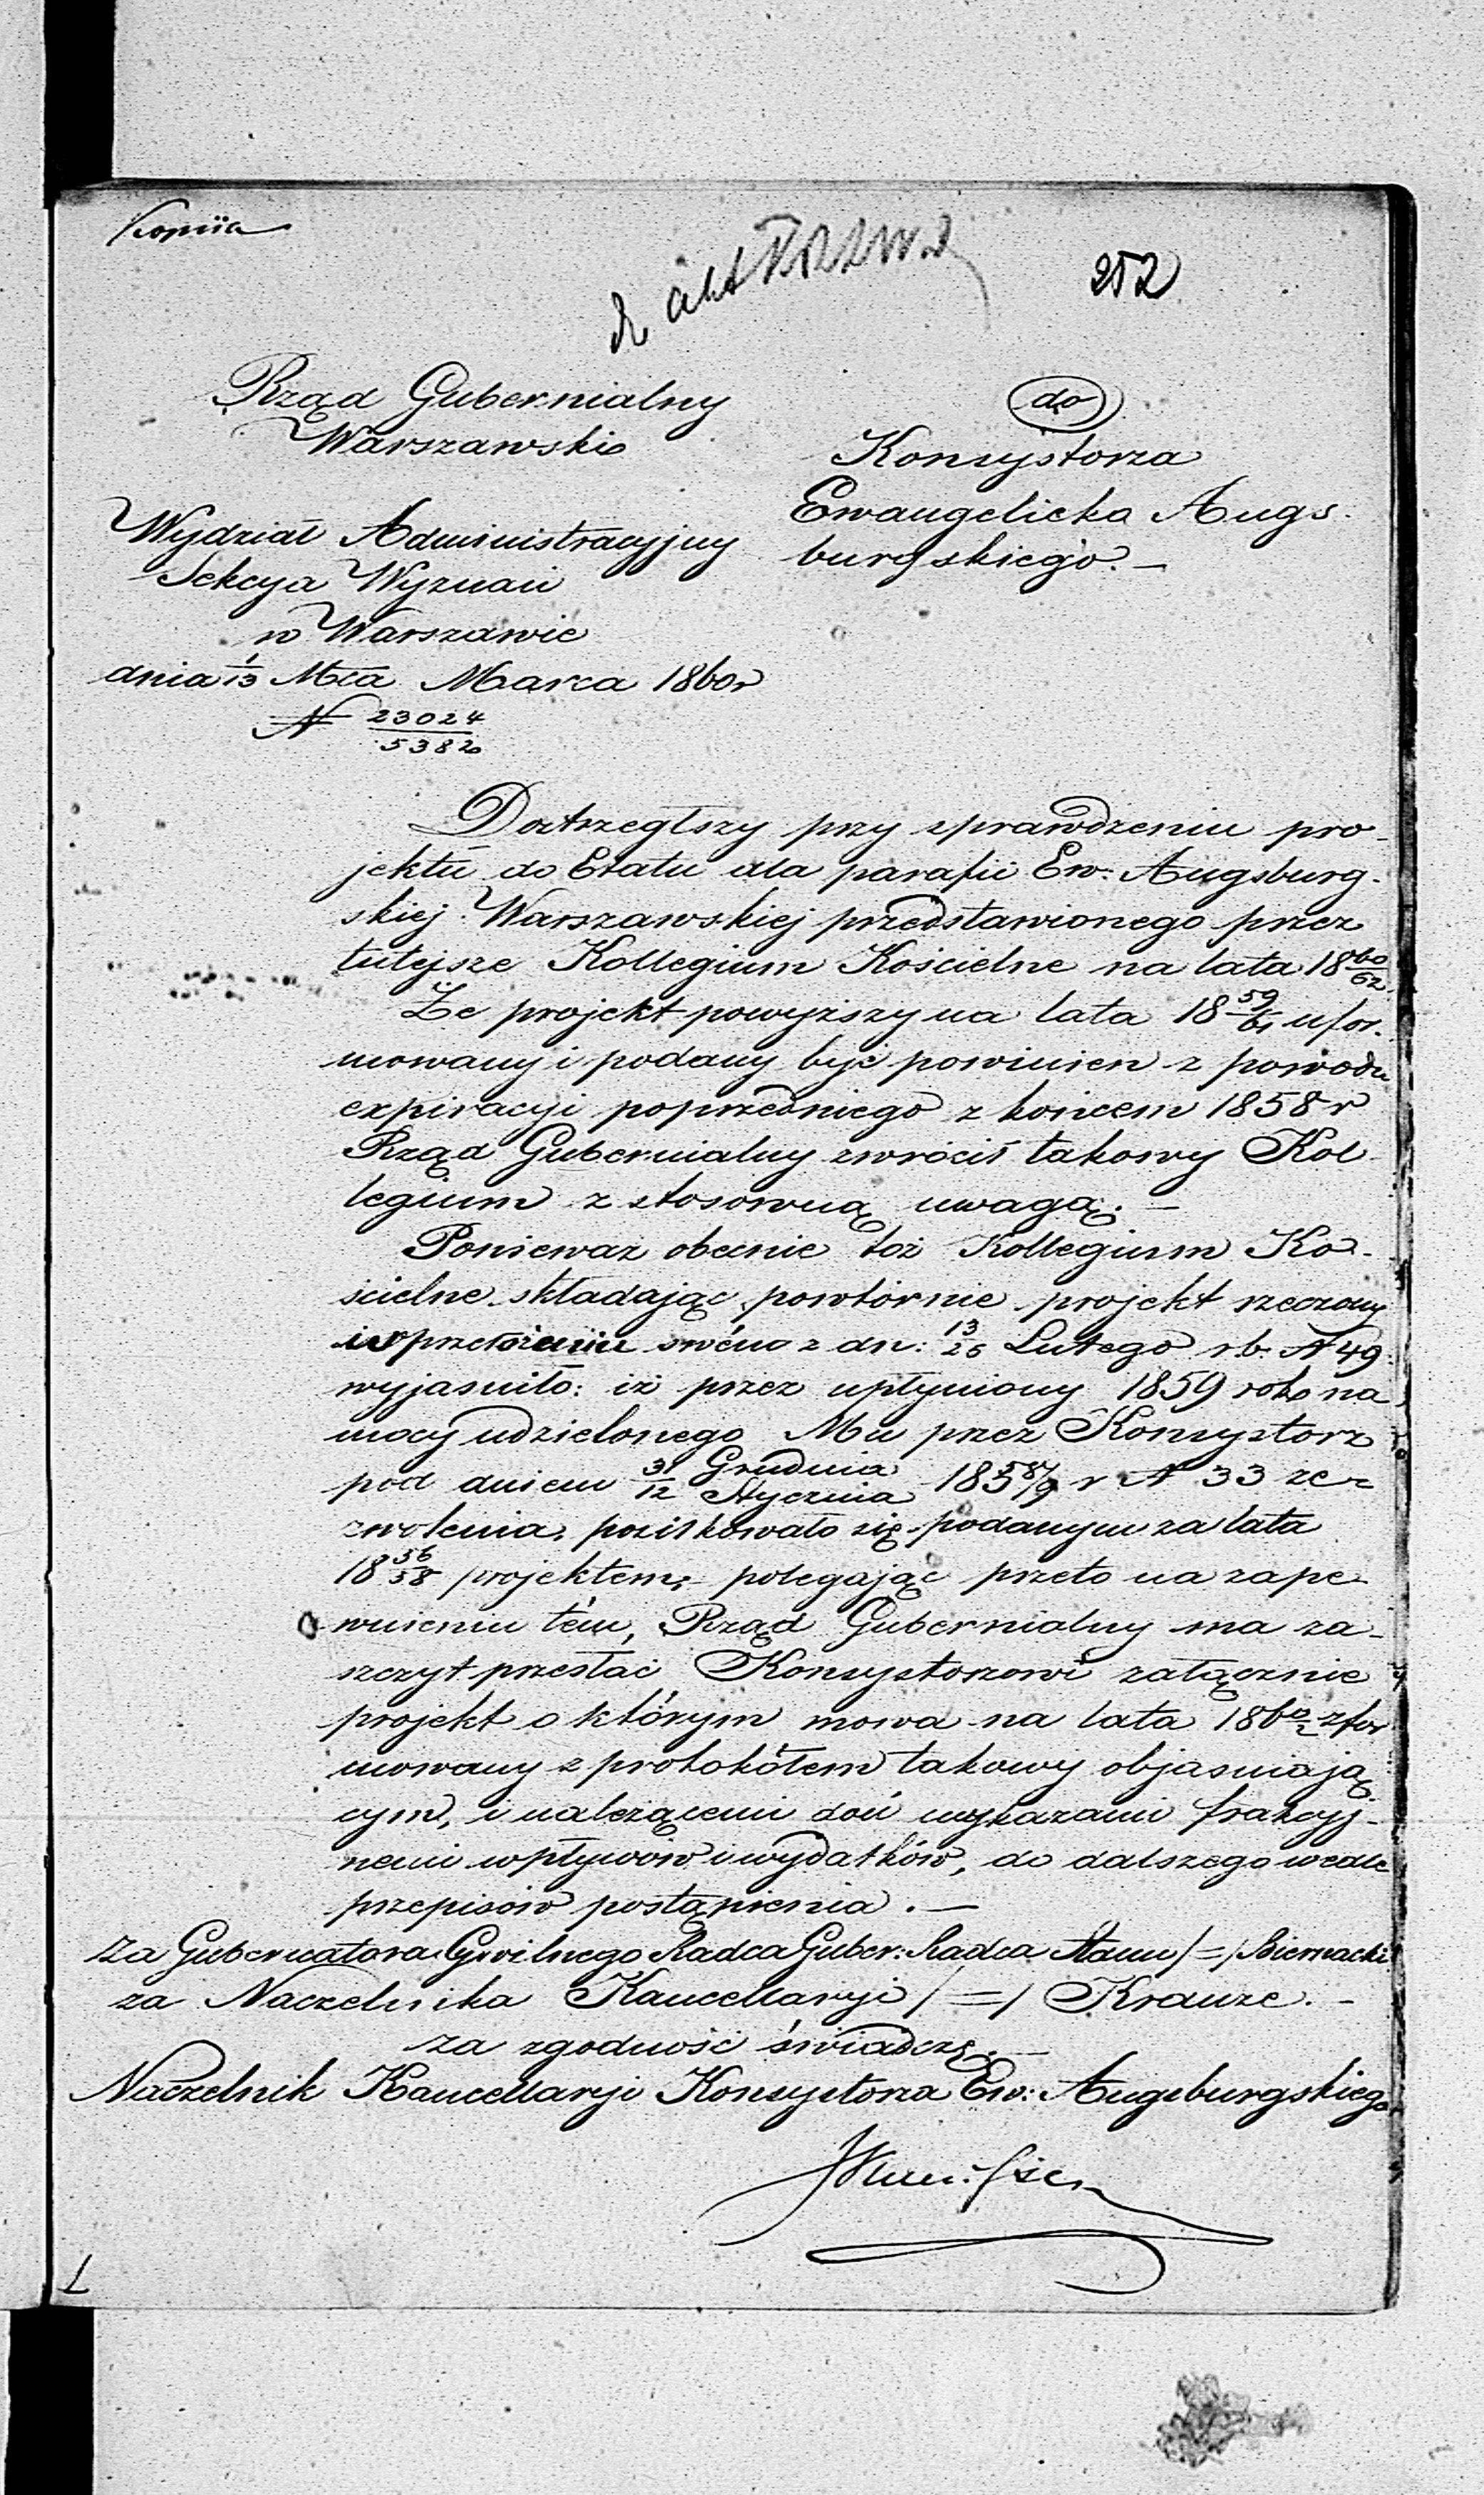 Kopija
252
Rząd Gubernialny
Warszawski
Wydział Administracyjny
Sekcya Wyznań
w Warszawie
dnia 1/13 Mca Marca 1860 r
N 23024/5382
do
Konsystorza
Ewangelicko Augs-
burgskiego. —
Dostrzegłszy przy sprawdzeniu pro-
jektu do Etatu dla parafii Ew: Augsburg-
skiej Warszawskiej przedstawionego przez
tutejsze Kollegium Kościelne na lata 1860/62
Że projekt powyższy na lata 1859/61 ufor-
mowany i podany być powinien z powodu
expiracyi poprzedniego z końcem 1858 r
Rząd Gubernialny zwrócił takowy Kol-
legium z stosowną uwagą. —
Ponieważ obecnie toż Kollegium Ko-
ścielne składając powtórnie projekt rzeczony
w przełożeniu swém z dn: 13/25 Lutego r b. N 49.
wyjaśniło: iż przez upłyniony 1859 rok na
mocy udzielonego Mu przez Konsystorz
pod dniem 31 Grudnia/12 Stycznia 1858/9 r N 33 ze-
zwolenia, posiłkowało się podanym za lata
1856/58 projektem; polegając przeto na zape-
wnieniu tém, Rząd Gubernialny ma za-
szczyt przesłać Konsystorzowi załącznie
projekt o którym mowa na lata 1860/2 zfor
mowany z protokółem takowy objaśniają-
cym, i należącemi doń wykazami frakcyj-
nemi wpływów i wydatków, do dalszego wedle
przepisów postąpienia. —
Za Gubernatora Cywilnego Radca Guber: Radca Stanu /=/ Biernacki.
za Naczelnika Kancellaryi /=/ Krauze. -
Za zgodność świadczę. —
Naczelnik Kancellaryi Konsystorza Ew: Augsburgskiego